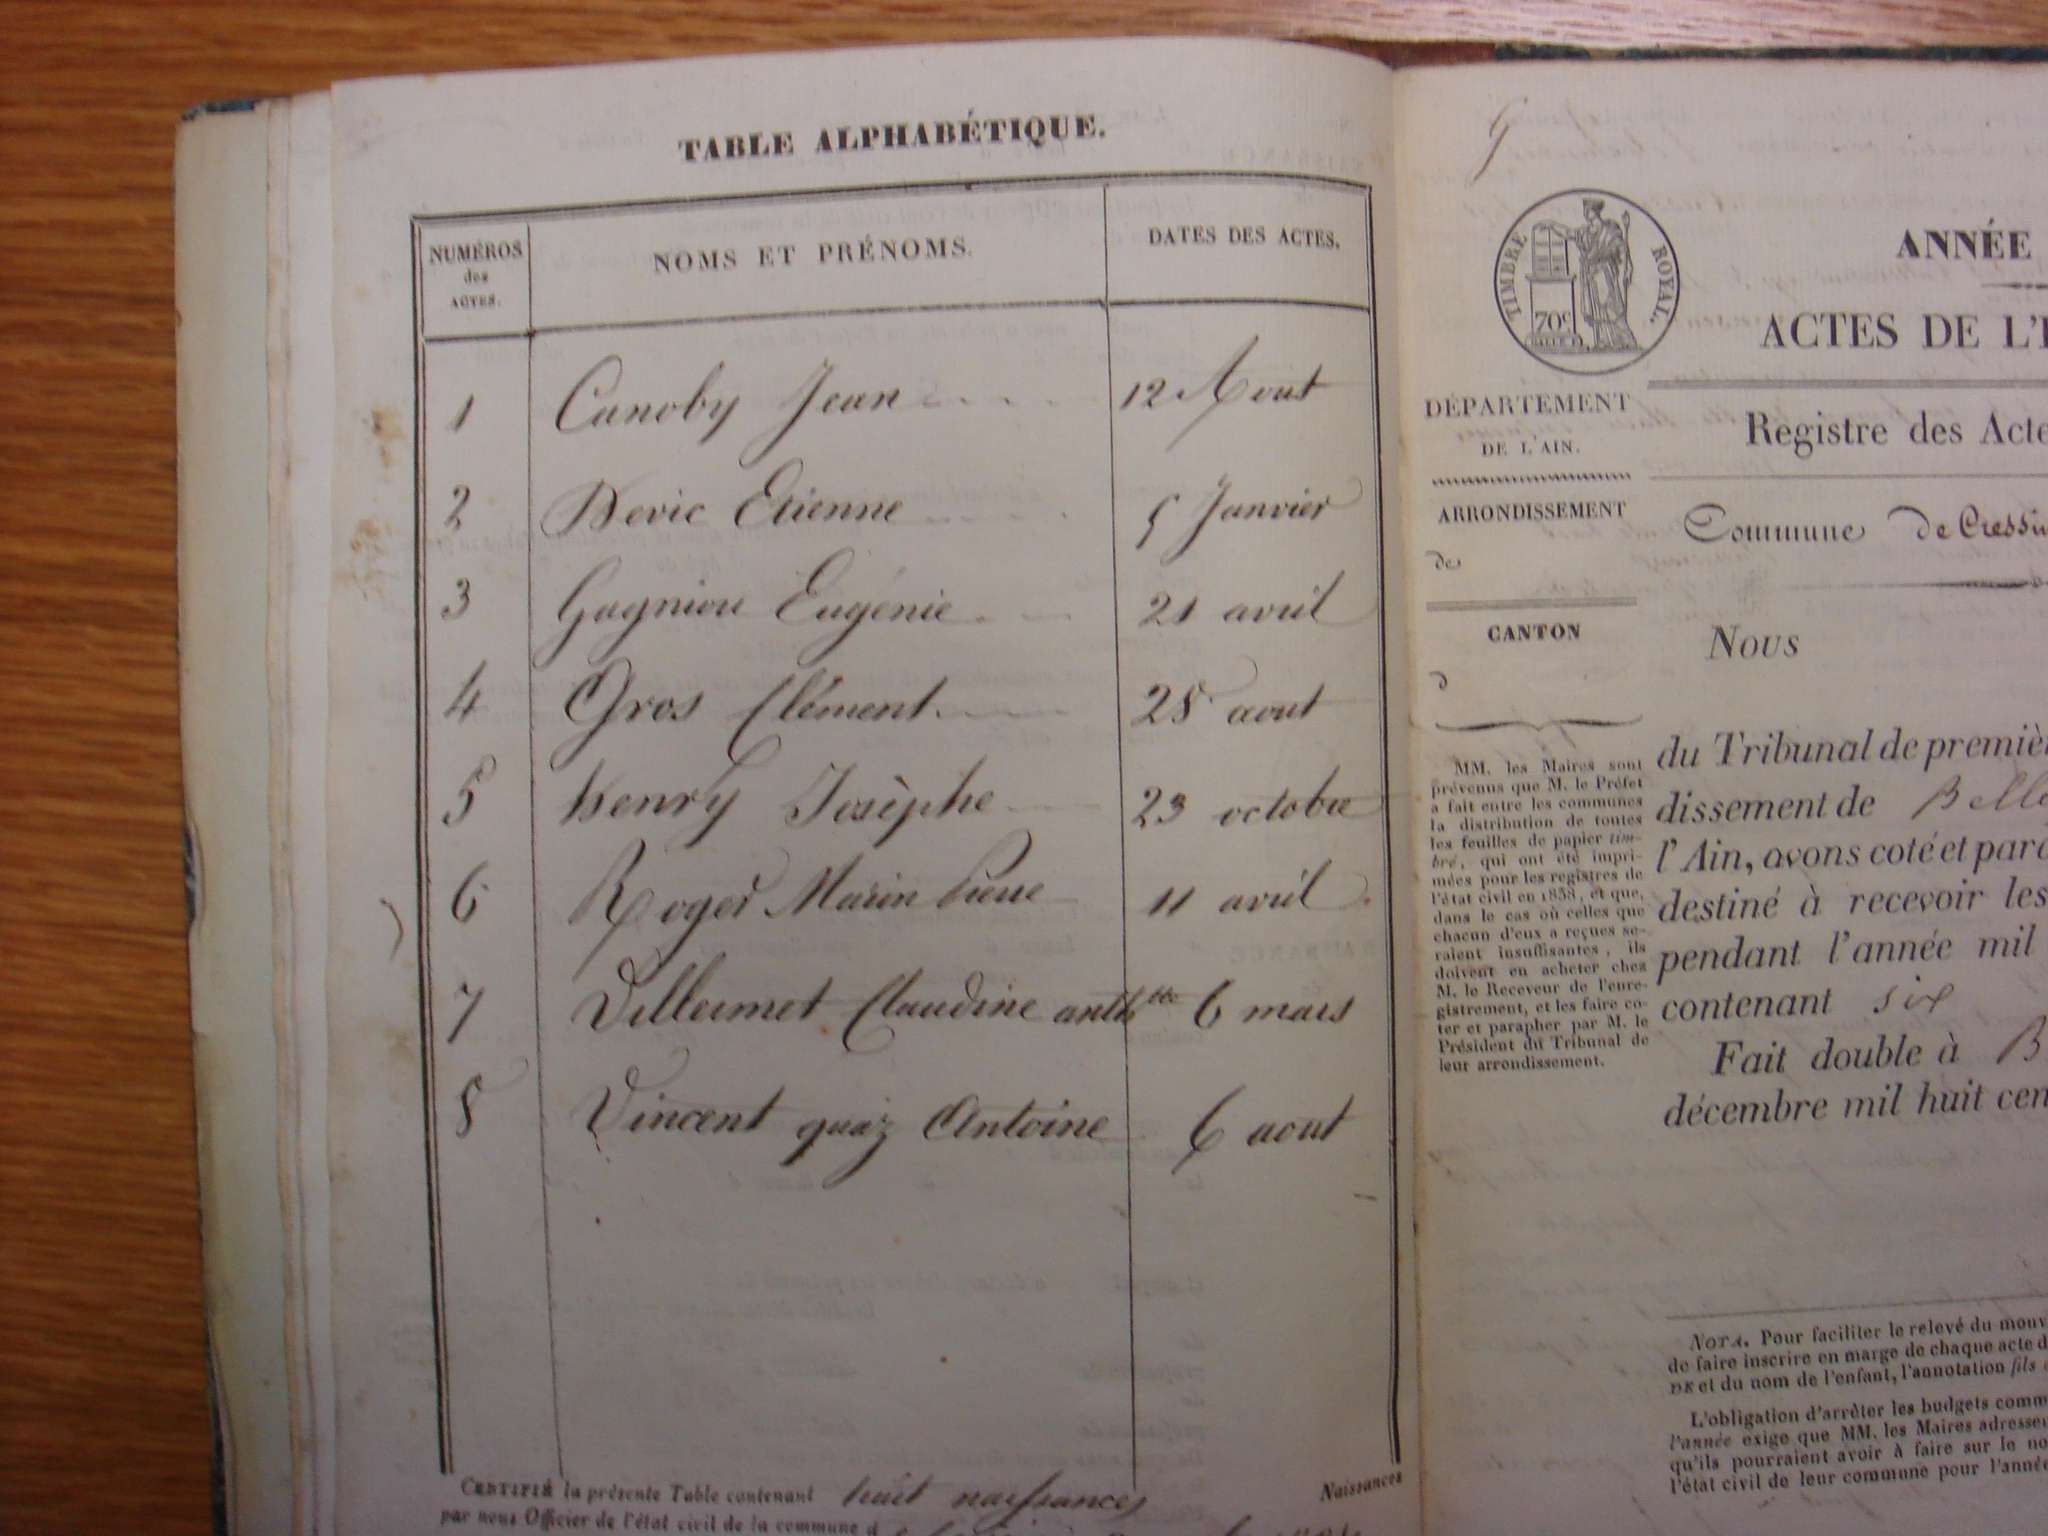 TABLE ALPHABÉTIQUE.
NUMÉROS des ACTES. NOMS ET PRÉNOMS. DATES DES ACTES.
1 Canoby Jean 12 Aout
2 Devic Etienne 5 Janvier
3 Gagniou Eugénie 21 avril
4 Gros Clément 28 aout
5 henry Josèphe 23 octobre
6 Roger Marin Pierre 11 avril
7 Villermet Claudine 6 mars
8 Vincent quaz Antoine 6 aout
CERTIFIÉ la présente Table contenant huit naissances Naissances
par nous Officier de l'état civil de la commune d
G
TIMBRE ROYAL.
70c
ANNÉE
ACTES DE L'
DÉPARTEMENT
DE L'AIN.
Registre des Acte
ARRONDISSEMENT
de
Commune de Cressi
CANTON
d
Nous
MM. les Maires sont
prévenus que M. le Préfet
a fait entre les communes
la distribution de toutes
les feuilles de papier tim-
bré, qui ont été impri-
mées pour les registres de
l'état civil en 1838, et que,
dans le cas où celles que
chacun d'eux a reçues se-
raient insuffisantes, ils
doivent en acheter chez
M. le Receveur de l'enre-
gistrement, et les faire co-
ter et parapher par M. le
Président du Tribunal de
leur arrondissement.
du Tribunal de premiè
dissement de Belle
l'Ain, avons coté et para
destiné à recevoir les
pendant l'année mil
contenant six
Fait double à B
décembre mil huit cen
NOTA. Pour faciliter le relevé du mouv
de faire inscrire en marge de chaque acte d
DE et du nom de l'enfant, l'annotation fils
L'obligation d'arrêter les budgets comm
l'année exige que MM. les Maires adresse
qu'ils pourraient avoir à faire sur le no
l'état civil de leur commune pour l'année